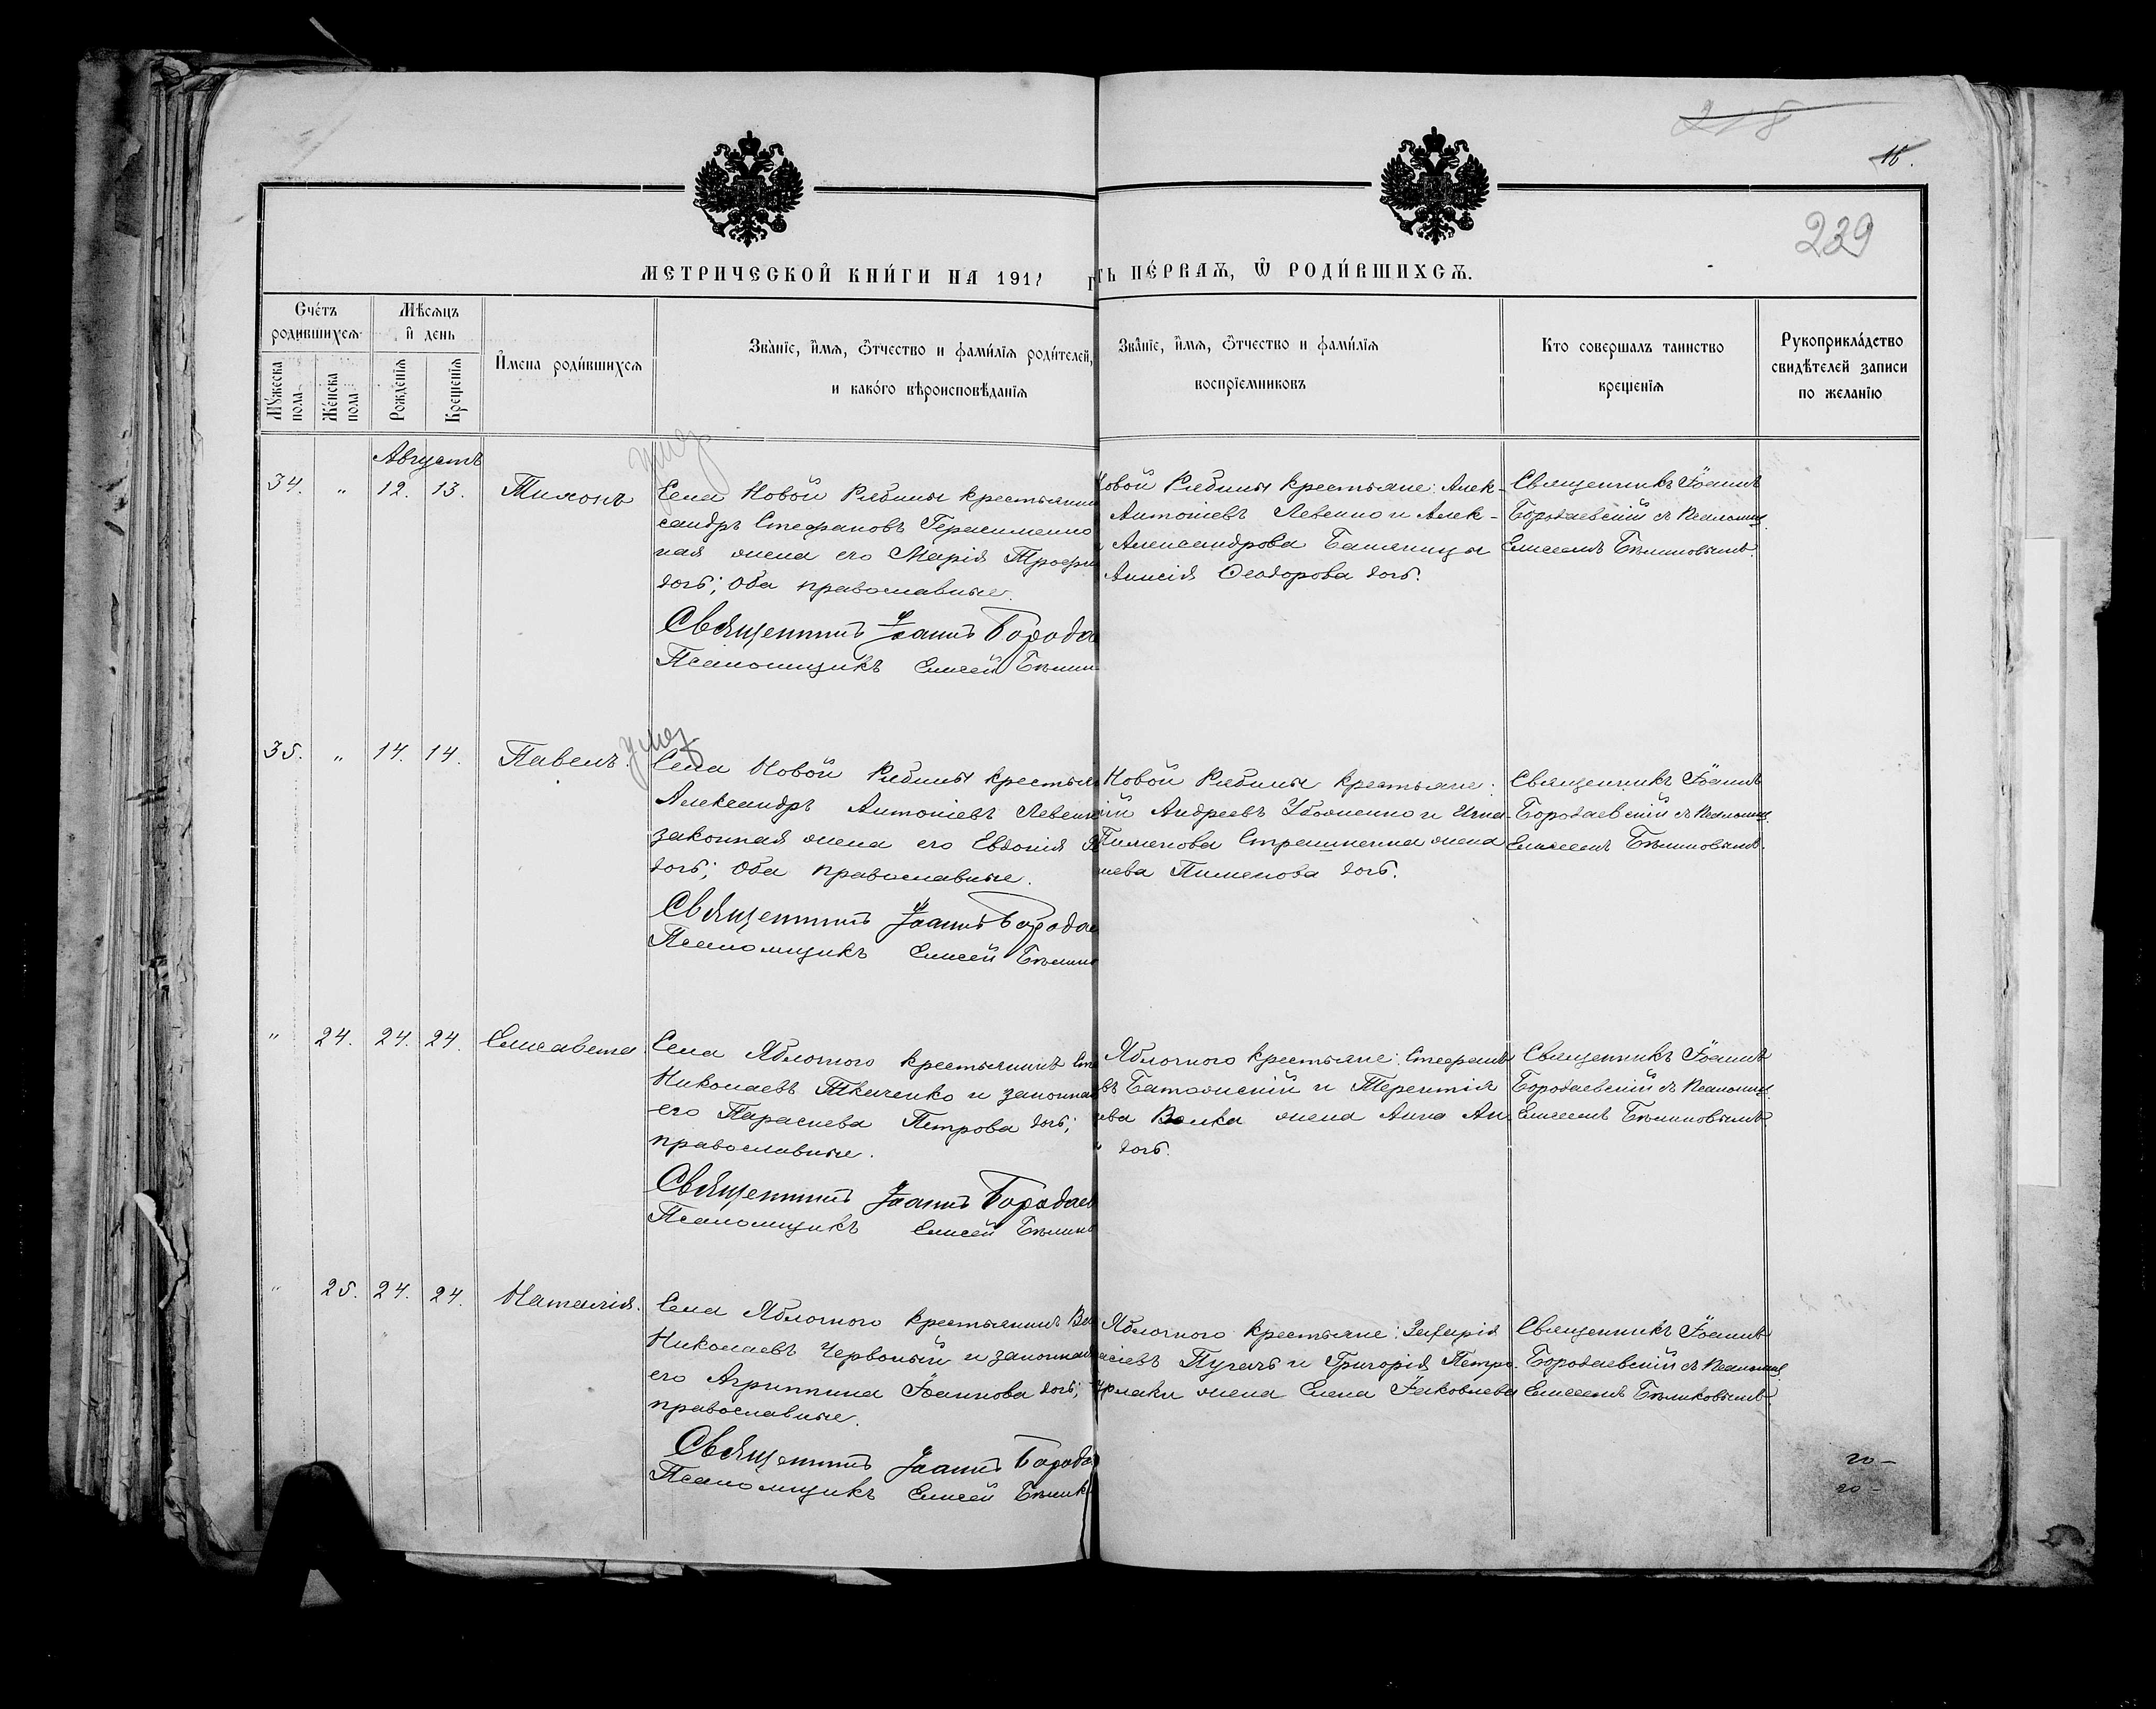 218
16.
239
МЕТРИЧЕСКОЙ КНИ́ГИ НА 1917 Г
ТЬ ПЕ́РВАѦ, Ѿ РОДИ́ВШИХСѦ.
Сче́тъ родившихсѧ
Мꙋ́жеска пола
Же́нска пола
Мѣсѧцъ и҆ день
Рожденїѧ
Крещенїѧ
И҆мена роди́вшихсѧ
Зва́нїе, и҆́мѧ, ѻ҆́тчество и фами́лїѧ роди́телей,
и како́го вѣроисповѣ́данїѧ
Зва́нїе, и҆́мѧ, ѻ҆́тчество и фами́лїѧ
воспрїемниковъ
Кто совершалъ таинство
крещенїѧ
Рукоприкла́дство
свидѣтелей записи
по желанїю
Августъ
34. " 12. 13. Тихонъ
умер
Села Новой Рябины крестьянин
сандръ Стефановъ Герасименко
ная жена его Марія Трофи
доч.; Оба православные.
Священникъ Іоаннъ Борода
Псаломщикъ Елисей Бѣлик
Новой Рябины крестьяне: Алек-
Антоніевъ Левенко и Алек-
Александрова
Анисія Ѳеодорова доч.
Священникъ Іоаннъ
Бородаевскій съ Псаломщ.
Елисеемъ Бѣликовымъ.
35. " 14. 14. Павелъ.
умер
Села Новой Рябины крестьян
Александръ Антоніевъ Левенк
законная жена его Евдокія
доч.; Оба православные.
Священникъ Іоаннъ Бородае
Псаломщикъ Елисей Бѣлик
Новой Рябины крестьяне:
ій Андреевъ Убоженко и Игна-
Пименова жена
Пименова доч.
Священникъ Іоаннъ
Бородаевскій съ Псаломщ.
Елисеемъ Бѣликовымъ.
" 24. 24. 24. Елисавета.
Села Яблочного крестьянинъ Сте
Николаевъ Ткаченко и законная
его Параскева Петрова доч.;
православные.
Священникъ Іоаннъ Бородаев
Псаломщикъ Елисей Бѣлик
Яблочного крестьяне: Стефанъ
въ и Терентія
ева Волка жена Анна Ан-
" доч.
Священникъ Іоаннъ
Бородаевскій съ Псаломщ.
Елисеемъ Бѣликовымъ
" 25. 24. 24. Наталія.
Села Яблочного крестьянинъ
Николаевъ Червоный и законная
его Агриппина Іоаннова доч.;
православные.
Священникъ Іоаннъ Борода
Псаломщикъ Елисей Бѣлик
Яблочного крестьяне: Захарія
асіевъ Пугачъ и Григорія Петро-
жена Елена Іаковлева
Священникъ Іоаннъ
Бородаевскій съ Псаломщ.
Елисеемъ Бѣликовымъ.
20-
20-